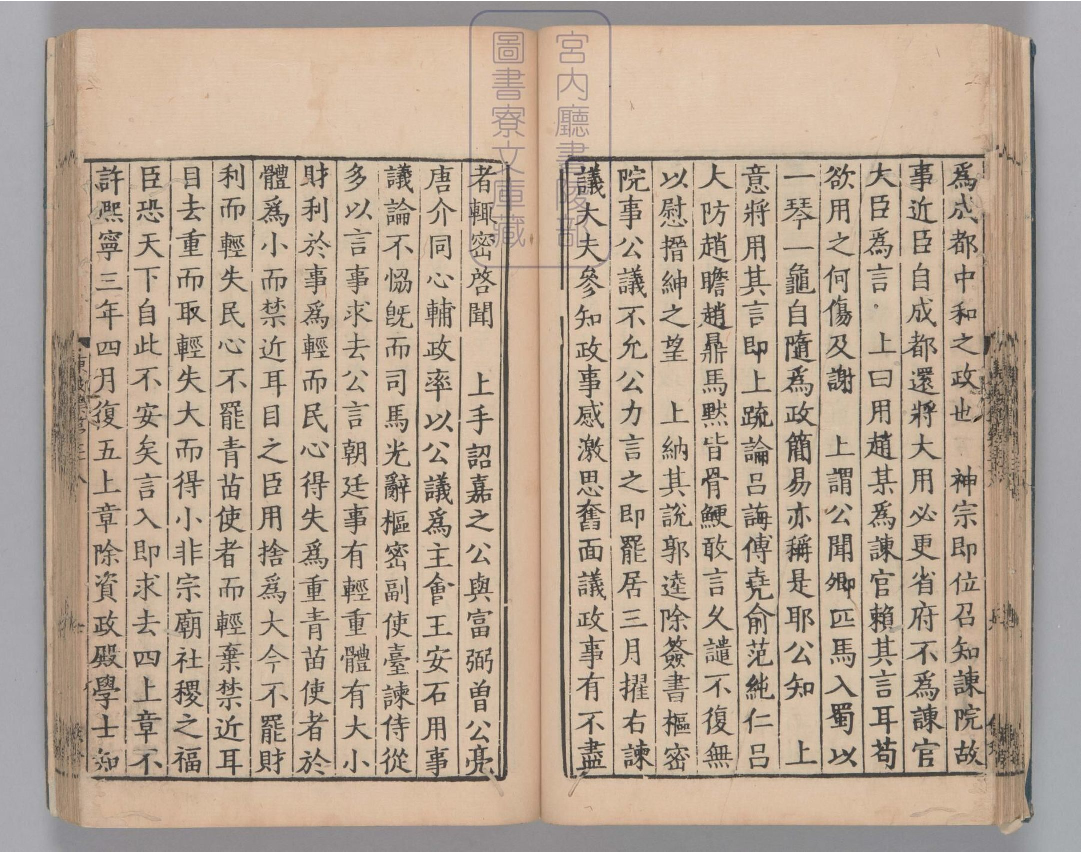 爲成都中和之政也　神宗即位召知諫院故
事近臣自成都還將大用必更省府不爲諫官
大臣爲言　上曰用趙某爲諫官賴其言耳苟
欲用之何傷及謝　上謂公聞卿匹馬入蜀以
一琴一龜自隨爲政簡易亦稱是耶公知　上
意將用其言即上疏論呂誨傅堯俞范純仁呂
大防趙瞻趙鼎馬默皆骨鯁敢言久譴不復無
以慰搢紳之望　上納其說郭逵除簽書樞密
院事公議不允公力言之即罷居三月擢右諫
議大夫參知政事感激思奮面議政事有不盡
者輒密啓聞　上手詔嘉之公與富弼曾公亮
唐介同心輔政率以公議爲主會王安石用事
議論不恊旣而司馬光辭樞密副使臺諫侍從
多以言事求去公言朝廷事有輕重體有大小
財利於事爲輕而民心得失爲重青苗使者於
體爲小而禁近耳目之臣用捨爲大今不罷財
利而輕失民心不罷青苗使者而輕棄禁近耳
目去重而取輕失大而得小非宗廟社稷之福
臣恐天下自此不安矣言入即求去四上章不
許熈寧三年四月復五上章除資政殿學士知
宮內廳書陵部
圖書寮文庫藏